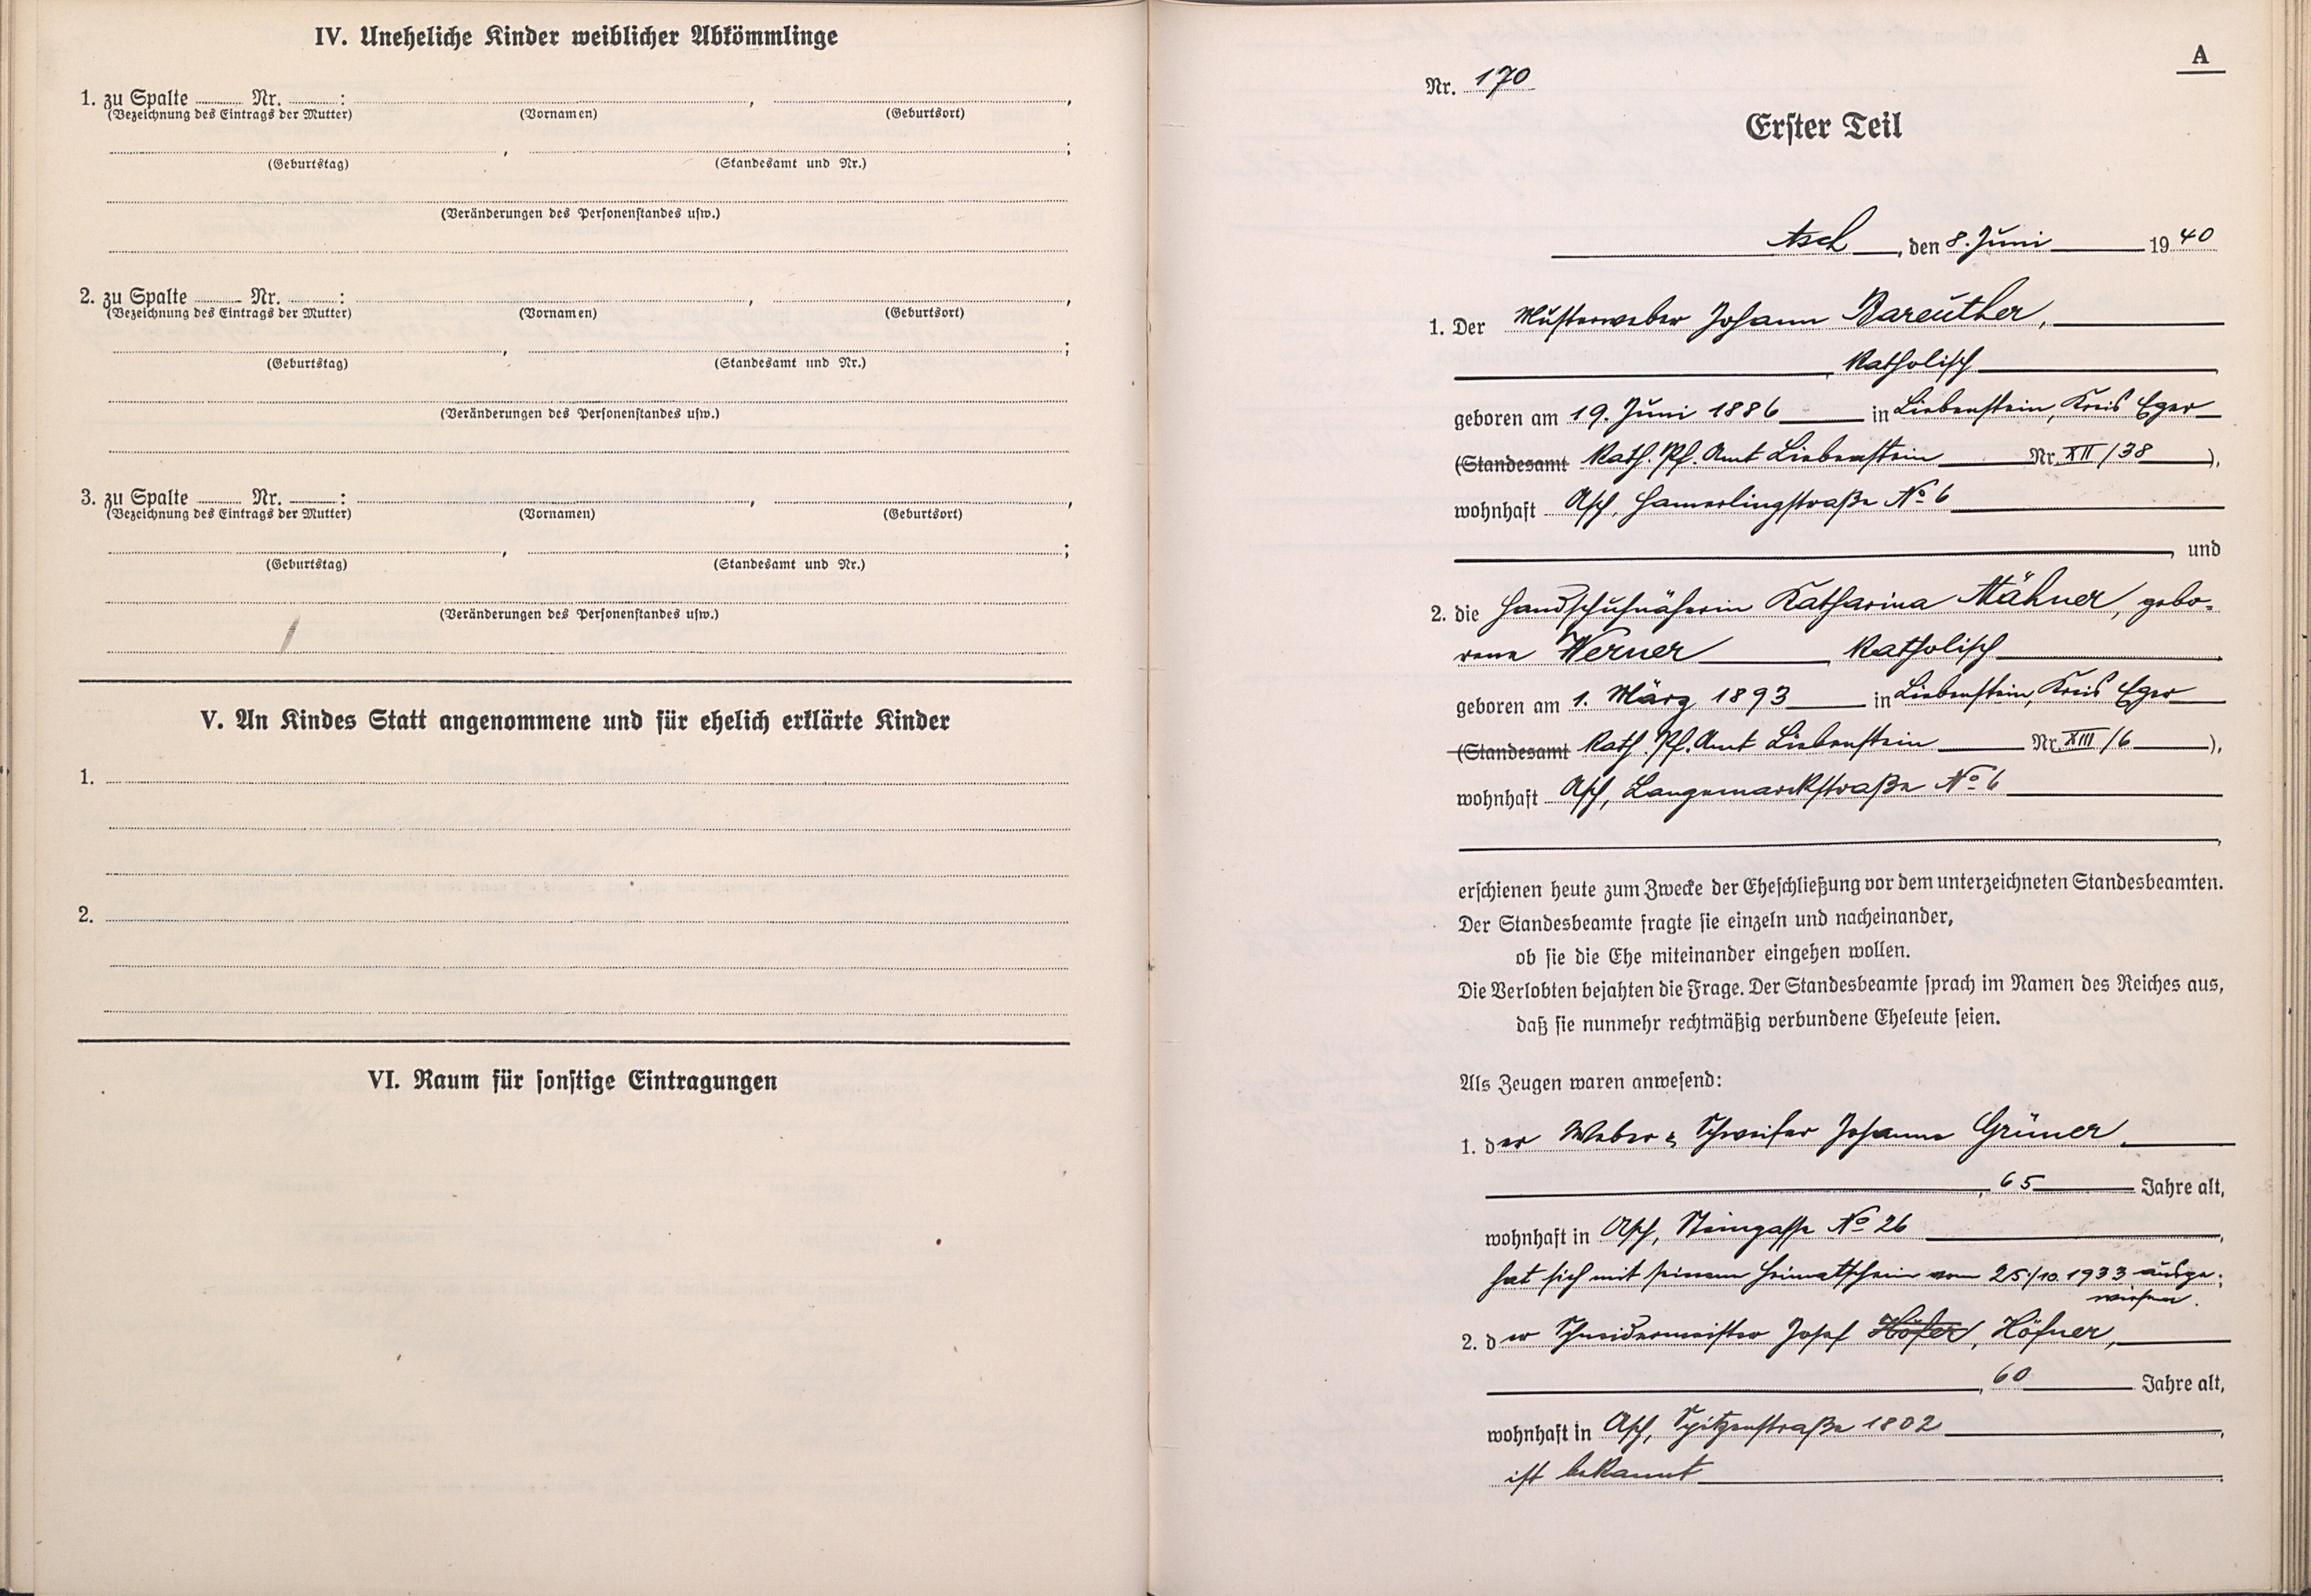 IV. Uneheliche Kinder weiblicher Abkömmlinge
1. zu Spalte ........ Nr. ........:
(Bezeichnung des Eintrags der Mutter) (Vornamen) (Geburtsort)
(Geburtstag) (Standesamt und Nr.)
(Veränderungen des Personenstandes usw.)
2. zu Spalte ........ Nr. ........:
(Bezeichnung des Eintrags der Mutter) (Vornamen) (Geburtsort)
(Geburtstag) (Standesamt und Nr.)
(Veränderungen des Personenstandes usw.)
3. zu Spalte ........ Nr. ........:
(Bezeichnung des Eintrags der Mutter) (Vornamen) (Geburtsort)
(Geburtstag) (Standesamt und Nr.)
(Veränderungen des Personenstandes usw.)
V. An Kindes Statt angenommene und für ehelich erklärte Kinder
1.
2.
VI. Raum für sonstige Eintragungen
A
Nr. 170
Erster Teil
Asch, den 8. Juni 1940
1. Der Musterweber Johann Bareuther,
katholisch
geboren am 19. Juni 1886 in Liebenstein, Kreis Eger
(Standesamt Kath. Pf. Amt Liebenstein Nr. XII/38),
wohnhaft Asch, Hamerlingstraße No 6
, und
2. die Handschuhnäherin Katharina Mähner, gebo-
rene Werner katholisch
geboren am 1. März 1893 in Liebenstein, Kreis Eger
(Standesamt Kath. Pf. Amt Liebenstein Nr. XIII/6),
wohnhaft Asch, Langemarckstraße No 6
erschienen heute zum Zwecke der Eheschließung vor dem unterzeichneten Standesbeamten.
Der Standesbeamte fragte sie einzeln und nacheinander,
ob sie die Ehe miteinander eingehen wollen.
Die Verlobten bejahten die Frage. Der Standesbeamte sprach im Namen des Reiches aus,
daß sie nunmehr rechtmäßig verbundene Eheleute seien.
Als Zeugen waren anwesend:
1. der Weber & Schweifer Johann Grüner,
, 65 Jahre alt,
wohnhaft in Asch, Steingasse No 26,
hat sich mit seinem Heimatschein vom 25./10. 1933 ausge-
wiesen.
2. der Schneidermeister Josef Höfer, Höfner,
, 60 Jahre alt,
wohnhaft in Asch, Spitzenstraße 1802,
ist bekannt